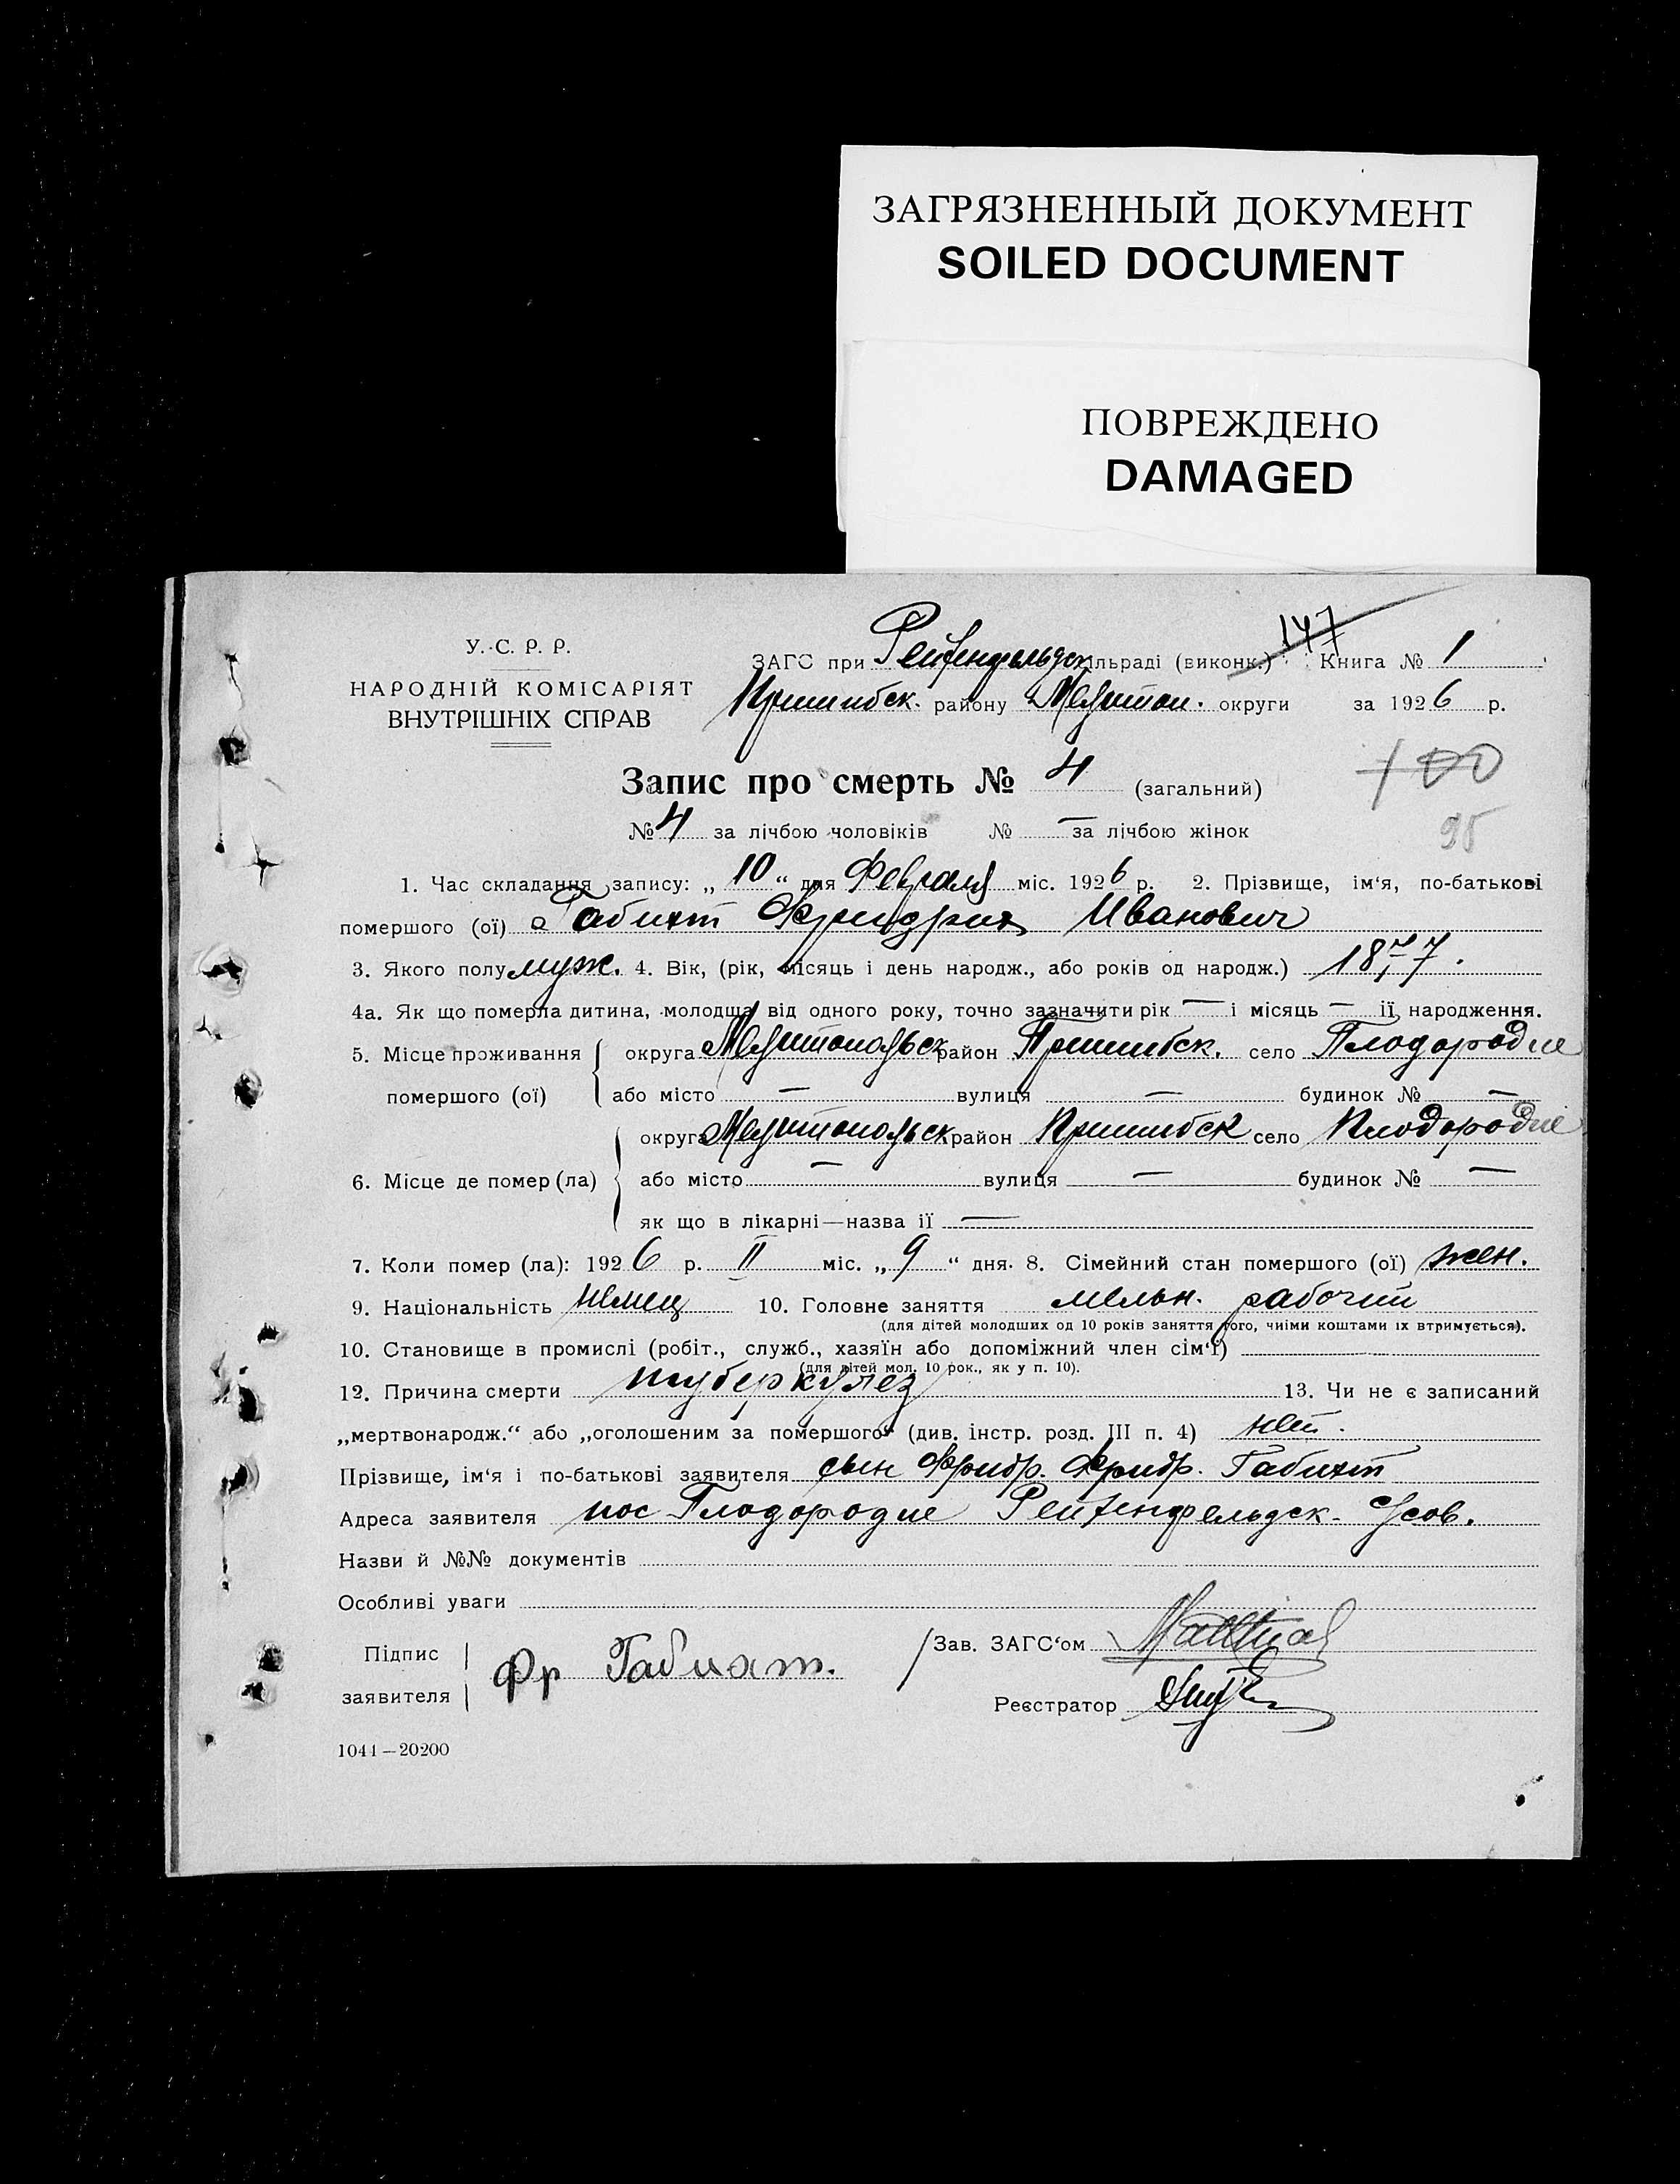 ЗАГРЯЗНЕННЫЙ ДОКУМЕНТ
SOILED DOCUMENT
ПОВРЕЖДЕНО
DAMAGED
147
У. С. Р. Р.
НАРОДНІЙ КОМІСАРІЯТ
ВНУТРІШНІХ СПРАВ
ЗАГС при Рейхенфельдск ільраді (виконк.) Книга № 1
Пришибск. району Мелитоп. округи за 1926 р.
Запис про смерть № 4 (загальний)
100
№ 4 за лічбою чоловіків № — за лічбою жінок
95
1. Час складання запису: „ 10 “ дня Февраля міс. 1926 р. 2. Прізвище, ім‘я, по-батькові
помершого (ої) Габихт Фридрих Иванович
3. Якого полу муж. 4. Вік, (рік, місяць і день народж., або років од народж.) 1877.
4а. Як що померла дитина, молодша від одного року, точно зазначити рік — і місяць — ії народження.
5. Місце проживання помершого (ої) округа Мелитопольск район Пришибск. село Плодородие
або місто — вулиця — будинок № —
6. Місце де помер (ла) округа Мелитопольск район Пришибск село Плодородие
або місто — вулиця — будинок № —
як що в лікарні—назва ії —
7. Коли помер (ла): 1926 р. II міс. „ 9 “ дня. 8. Сімейний стан помершого (ої) жен.
9. Національність немец 10. Головне заняття мельн. рабочий
(для дітей молодших од 10 років заняття того, чиїми коштами їх втримується).
10. Становище в промислі (робіт., служб., хазяїн або допоміжний член сім‘ї)
(для дітей мол. 10 рок., як у п. 10).
12. Причина смерти туберкулез 13. Чи не є записаний
„мертвонародж.“ або „оголошеним за помершого“ (див. інстр. розд. III п. 4) нет.
Прізвище, ім‘я і по-батькові заявителя сын Фридр. Фридр. Габихт
Адреса заявителя пос Плодородие Рейхенфельдск. с/сов.
Назви й №№ документів
Особливі уваги
Підпис заявителя Фр Габихт.
Зав. ЗАГС‘ом
Реєстратор
1041—20200